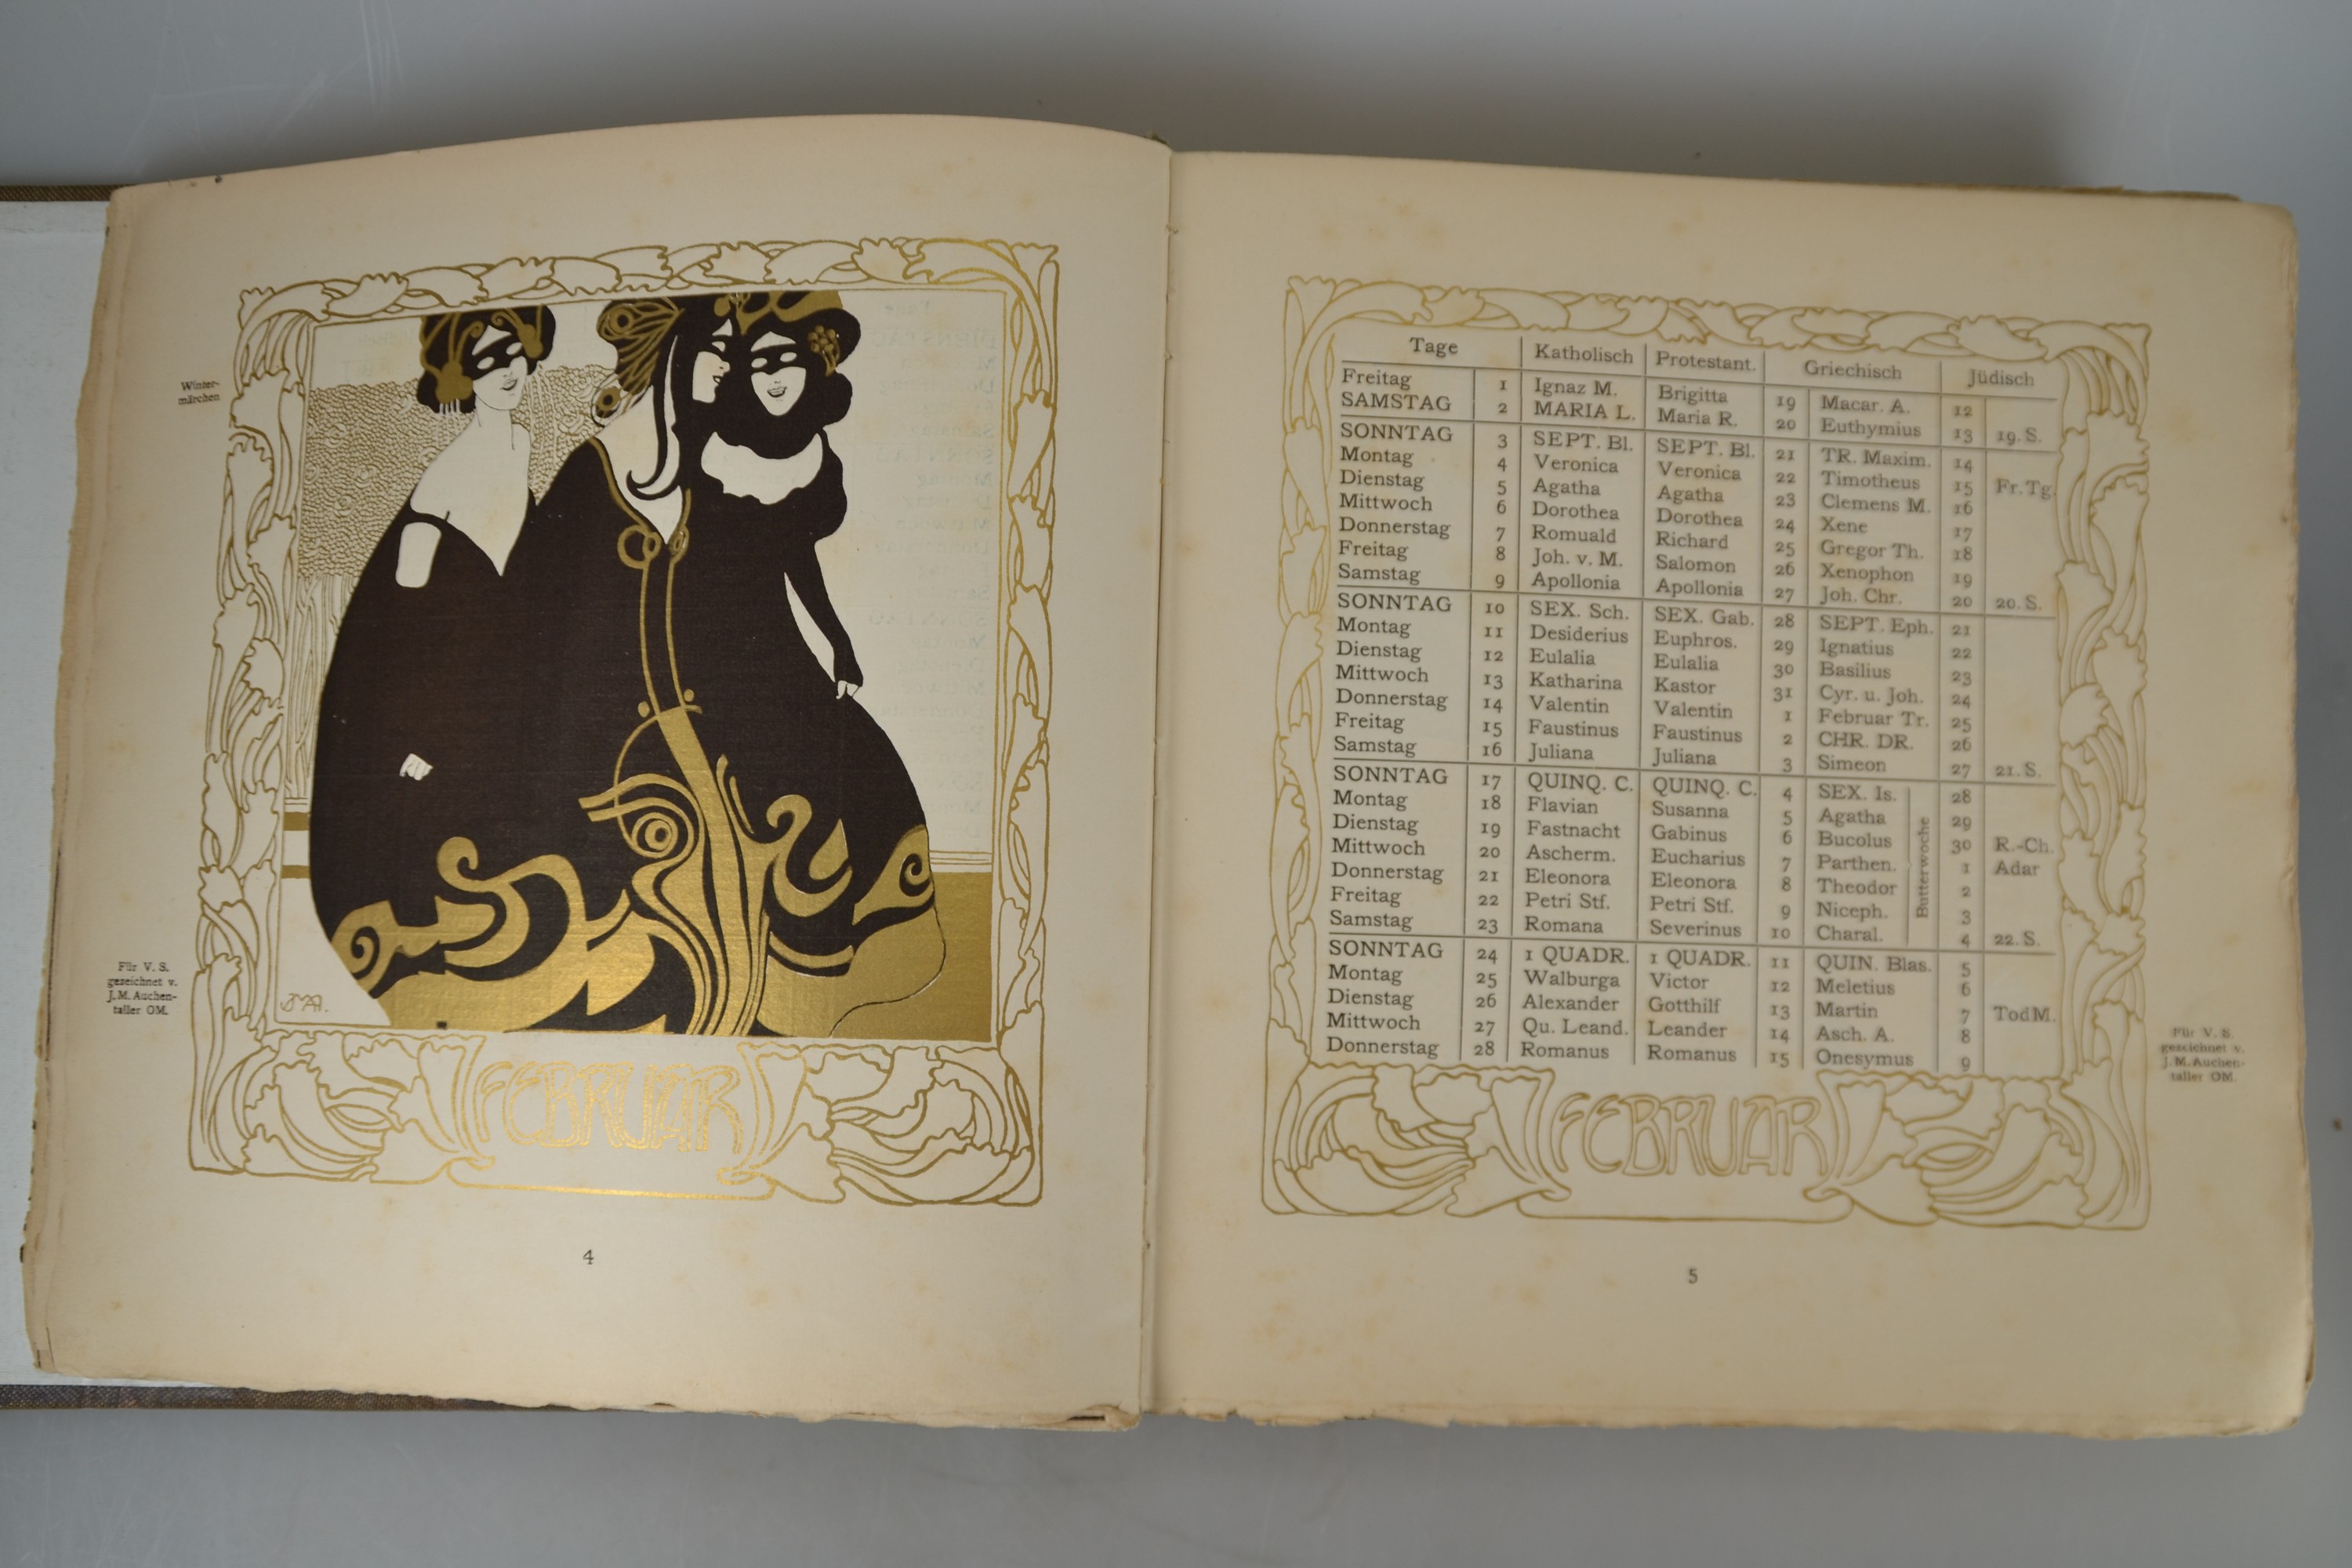 Winter-
märchen
Für V. S.
gezeichnet v.
J. M. Auchen-
taller OM.
JMA.
FEBRUAR
4
Tage Katholisch Protestant. Griechisch Jüdisch
Freitag 1 Ignaz M. Brigitta 19 Macar. A. 12
SAMSTAG 2 MARIA L. Maria R. 20 Euthymius 13 19. S.
SONNTAG 3 SEPT. Bl. SEPT. Bl. 21 TR. Maxim. 14
Montag 4 Veronica Veronica 22 Timotheus 15 Fr. Tg.
Dienstag 5 Agatha Agatha 23 Clemens M. 16
Mittwoch 6 Dorothea Dorothea 24 Xene 17
Donnerstag 7 Romuald Richard 25 Gregor Th. 18
Freitag 8 Joh. v. M. Salomon 26 Xenophon 19
Samstag 9 Apollonia Apollonia 27 Joh. Chr. 20 20. S.
SONNTAG 10 SEX. Sch. SEX. Gab. 28 SEPT. Eph. 21
Montag 11 Desiderius Euphros. 29 Ignatius 22
Dienstag 12 Eulalia Eulalia 30 Basilius 23
Mittwoch 13 Katharina Kastor 31 Cyr. u. Joh. 24
Donnerstag 14 Valentin Valentin 1 Februar Tr. 25
Freitag 15 Faustinus Faustinus 2 CHR. DR. 26
Samstag 16 Juliana Juliana 3 Simeon 27 21. S.
SONNTAG 17 QUINQ. C. QUINQ. C. 4 SEX. Is. 28
Montag 18 Flavian Susanna 5 Agatha 29
Dienstag 19 Fastnacht Gabinus 6 Bucolus 30 R.-Ch.
Mittwoch 20 Ascherm. Eucharius 7 Parthen. 1 Adar
Donnerstag 21 Eleonora Eleonora 8 Theodor 2
Freitag 22 Petri Stf. Petri Stf. 9 Niceph. 3
Samstag 23 Romana Severinus 10 Charal. 4 22. S.
Butterwoche
SONNTAG 24 1 QUADR. 1 QUADR. 11 QUIN. Blas. 5
Montag 25 Walburga Victor 12 Meletius 6
Dienstag 26 Alexander Gotthilf 13 Martin 7 Tod M.
Mittwoch 27 Qu. Leand. Leander 14 Asch. A. 8
Donnerstag 28 Romanus Romanus 15 Onesymus 9
Für V. S.
gezeichnet v.
J. M. Auchen-
taller OM.
FEBRUAR
5